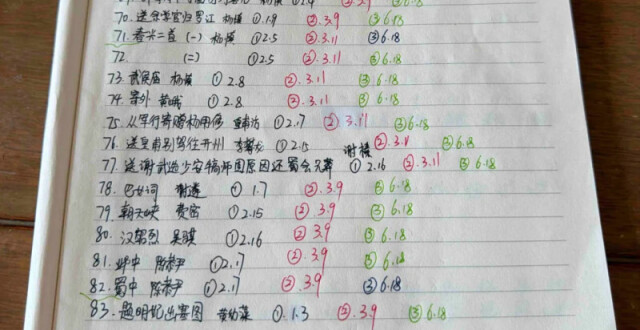 70. 送余学官归罗江 杨慎 ①1.9 ②3.9 ③6.18
71. 春兴二首 (一) 杨慎 ①2.5 ②3.11 ③6.18
72. (二) ①2.5 ②3.11 ③6.18
73. 武侯庙 杨慎 ①2.8 ②3.11 ③6.18
74. 寄外 黄峨 ①2.8 ②3.11 ③6.18
75. 从军行寄赠杨用修 ①2.17 ②3.11 ③6.18
76. 送皇甫别驾往开州 李攀龙 ①2.15 ②3.11 ③6.18
谢榛
77. 送谢武选少安犒师固原因还蜀会兄葬 ①2.16 ②3.11 ③6.18
78. 巴女词 ①1.7 ②3.9 ③6.18
79. 朝天峡 费密 ①2.15 ②3.9 ③6.18
80. 汉昭烈 吴骐 ①2.16 ②3.9 ③6.18
81. 蜀中 陈恭尹 ①2.17 ②3.9 ③6.18
82. 蜀中 陈恭尹 ①2.17 ②3.9 ③6.18
83. 题明妃出塞图 黄幼藻 ①1.3 ②3.9 ③6.18